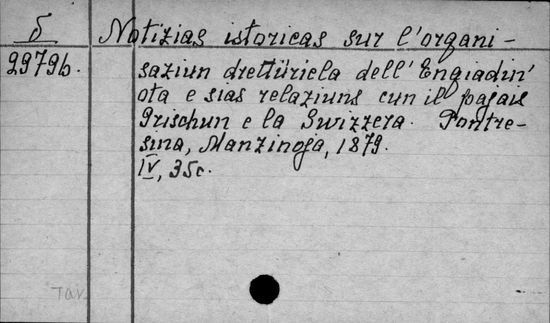 δ Notizias istoricas sur l'organi-
29796. saziun drettüriela dell' Engiadin'
ota e sias relaziuns cun il pajais
Grischun e la Svizzera. Pontre-
sina, Manzinoja, 1879.
IV, 35 c.
Tav.